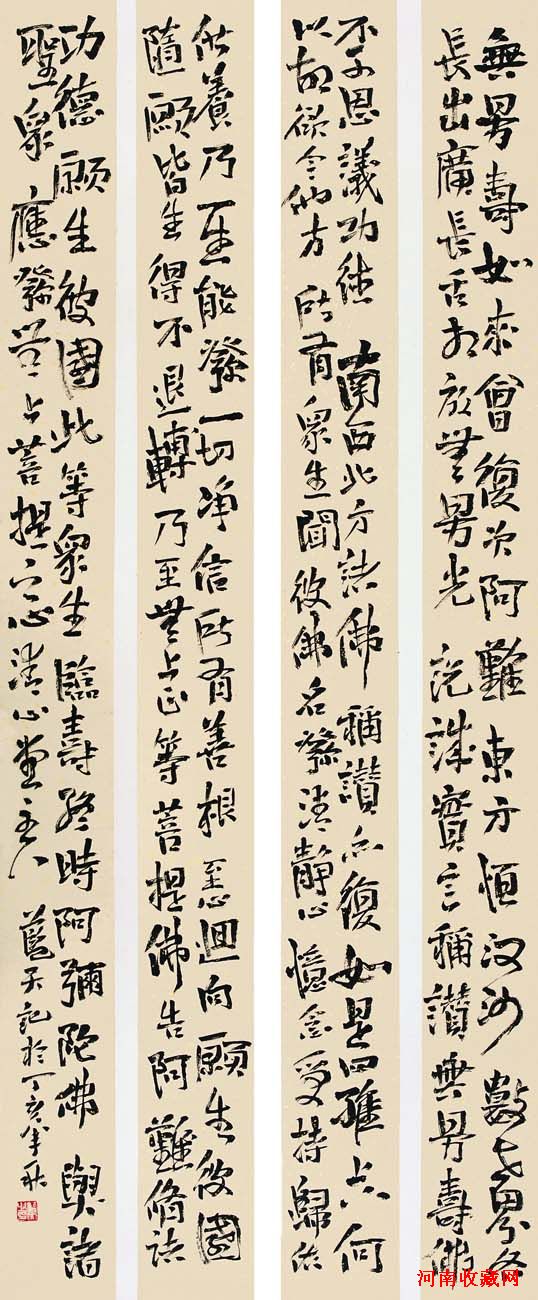 無量壽如來會復次阿難東方恒河沙數世界
長出廣長舌相放無量光說誠實言稱讚無量壽佛
不可思議功德南西北方諸佛稱讚亦復如是四維上下何
以故欲令他方所有衆生聞彼佛名發清靜心憶念受持歸依
供養乃至能發一切淨信所有善根至心迴向願生彼國
隨願皆生得不退轉乃至無上正等菩提佛告阿難修諸
功德願生彼國此等衆生臨壽終時阿彌陀佛與諸
聖衆應發無上菩提之心清心堂主人
藍天記於丁亥年秋
河南收藏网